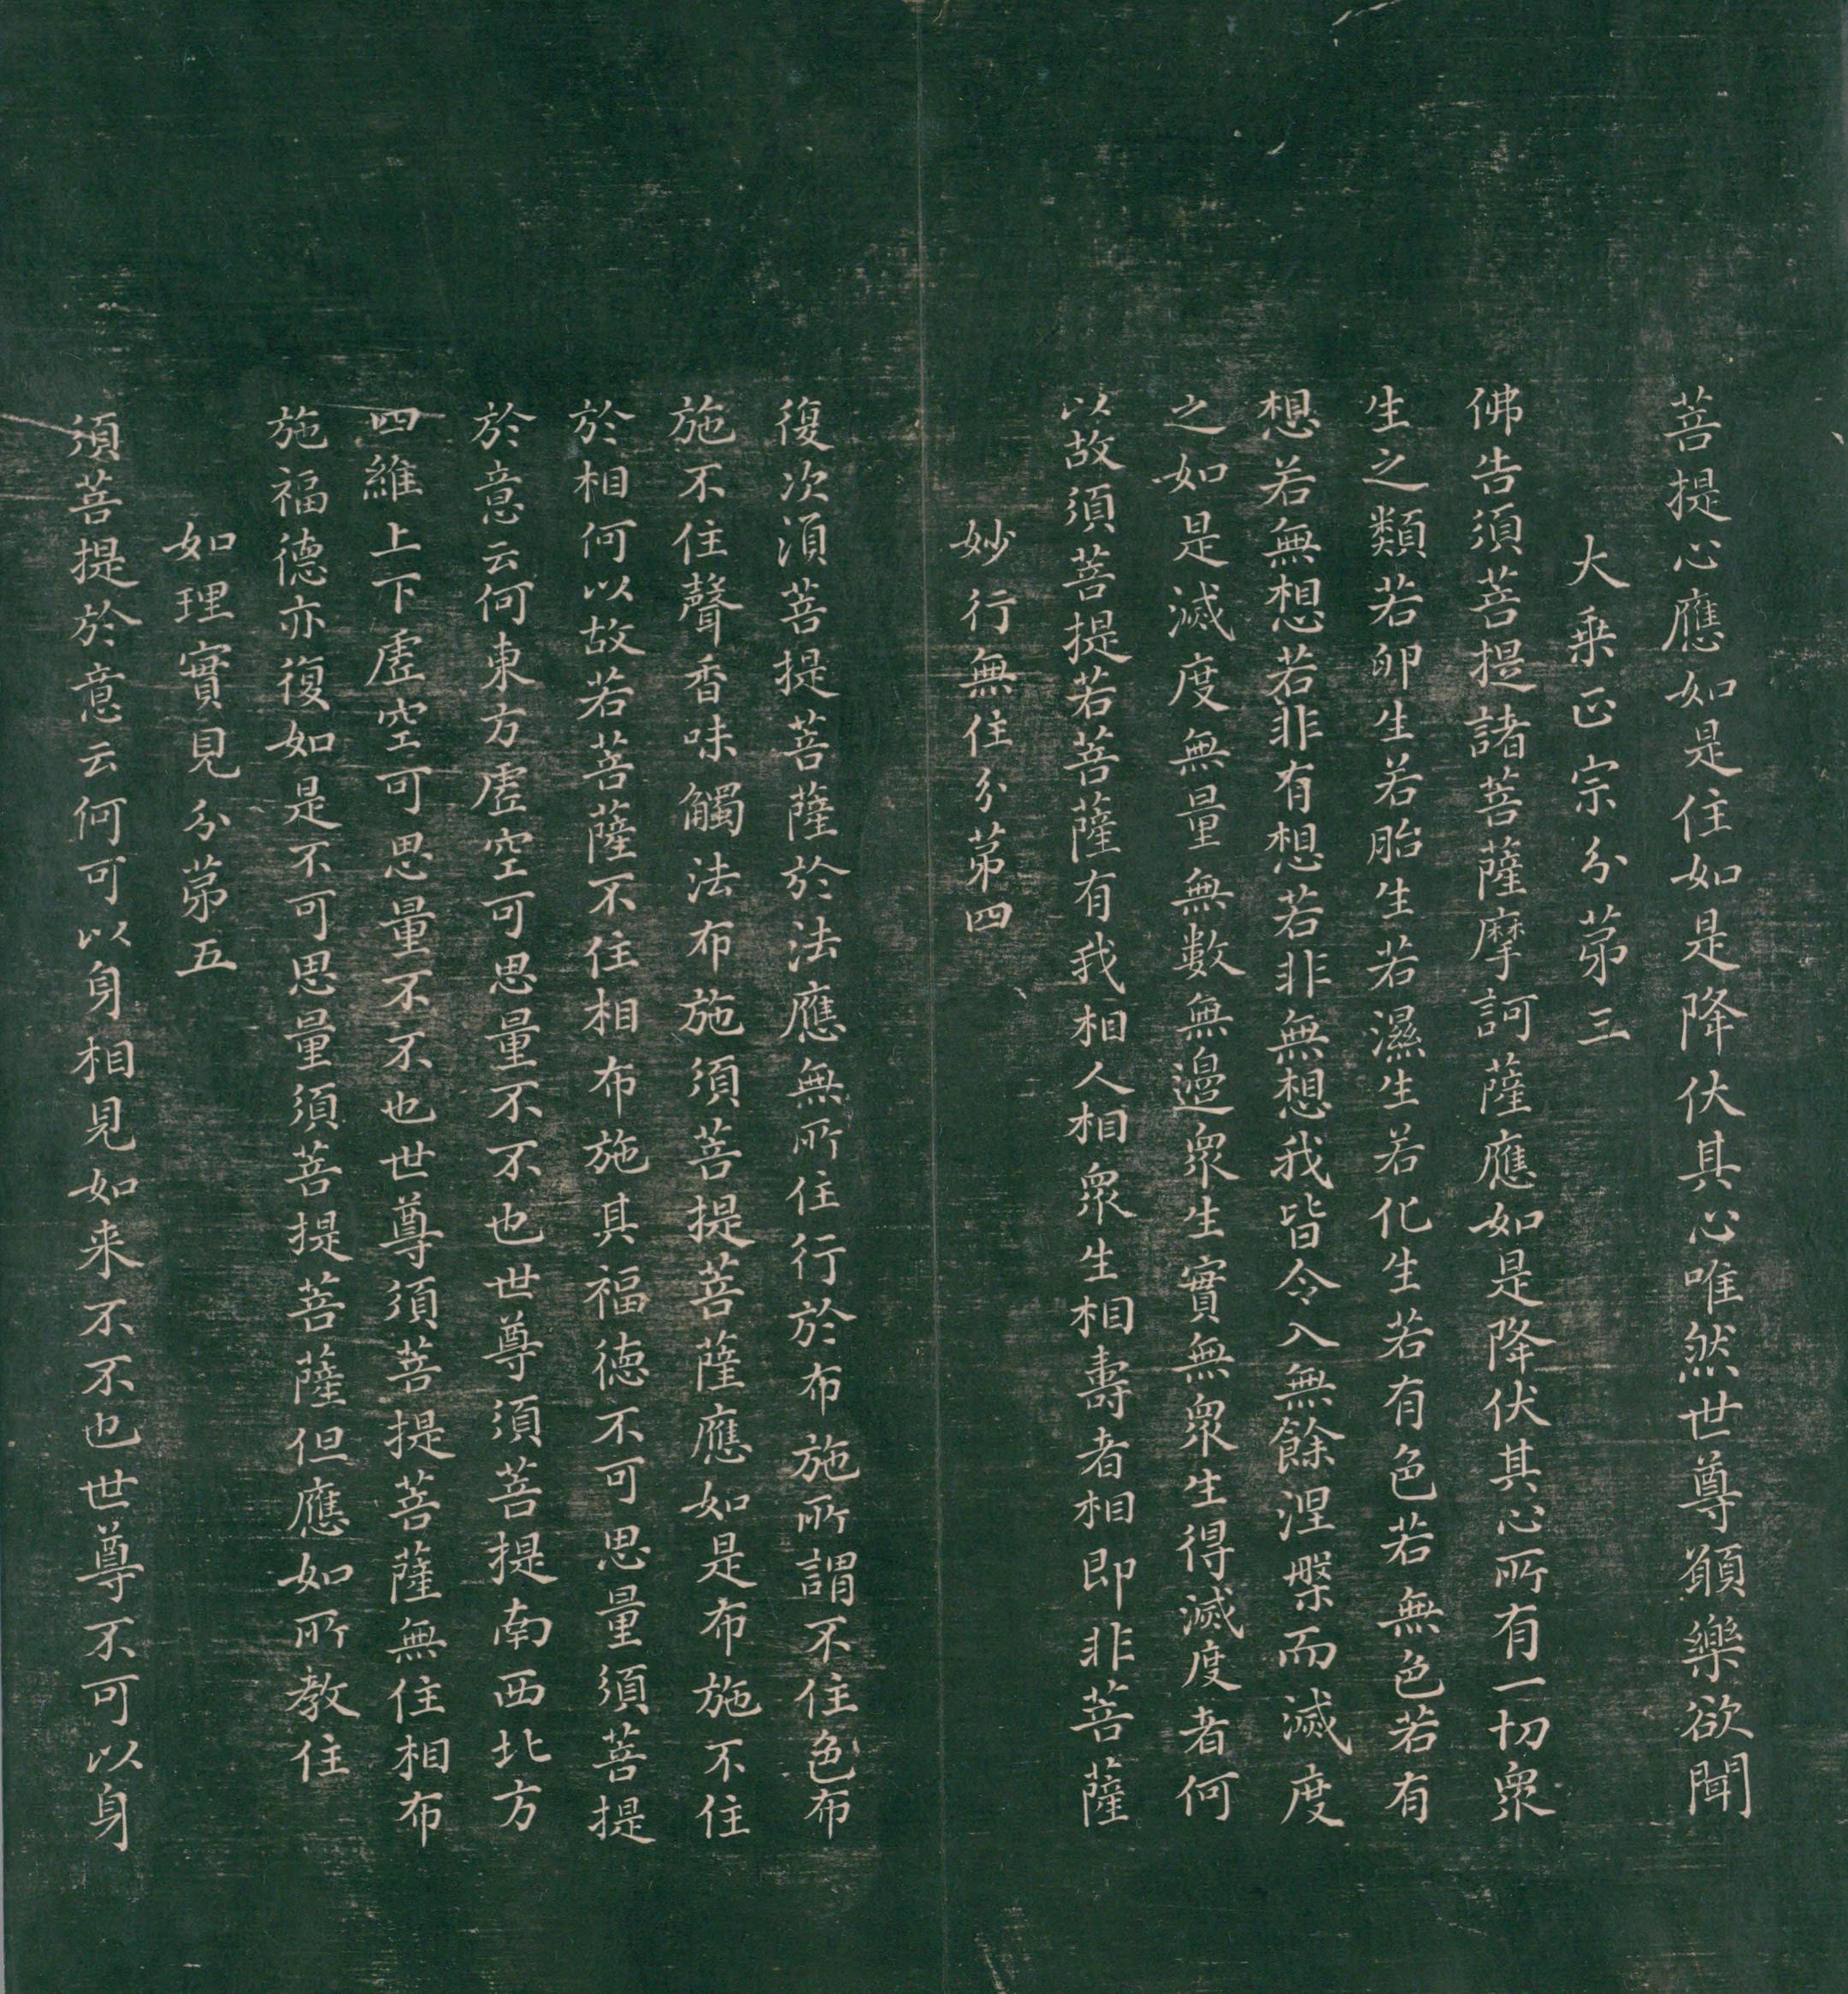 菩提心應如是住如是降伏其心唯然世尊願樂欲聞
大乗正宗分第三
佛告須菩提諸菩薩摩訶薩應如是降伏其心所有一切衆
生之類若卵生若胎生若濕生若化生若有色若無色若有
想若無想若非有想若非無想我皆令入無餘涅槃而滅度
之如是滅度無量無數無邊衆生實無衆生得滅度者何
以故須菩提若菩薩有我相人相衆生相壽者相即非菩薩
妙行無住分第四
復次湏菩提菩薩於法應無所住行於布施所謂不住色布
施不住聲香味觸法布施須菩提菩薩應如是布施不住
於相何以故若菩薩不住相布施其福德不可思量須菩提
於意云何東方虛空可思量不不也世尊須菩提南西北方
四維上下虛空可思量不不也世尊須菩提菩薩無住相布
施福德亦復如是不可思量須菩提菩薩但應如所教住
如理實見分第五
須菩提於意云何可以身相見如来不不也世尊不可以身